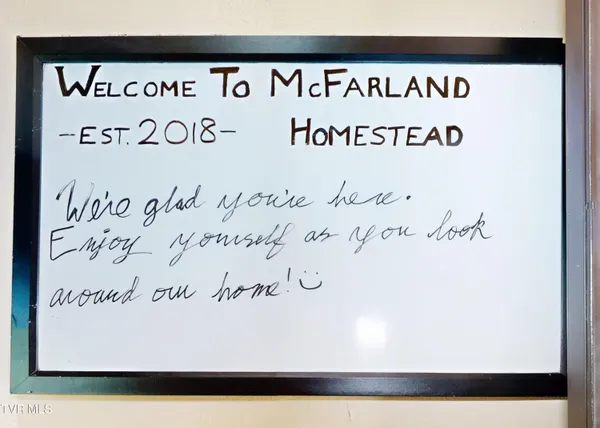 WELCOME TO MCFARLAND
-EST. 2018- HOMESTEAD
We're glad you're here.
Enjoy yourself as you look
around our home! :)
TVR MLS